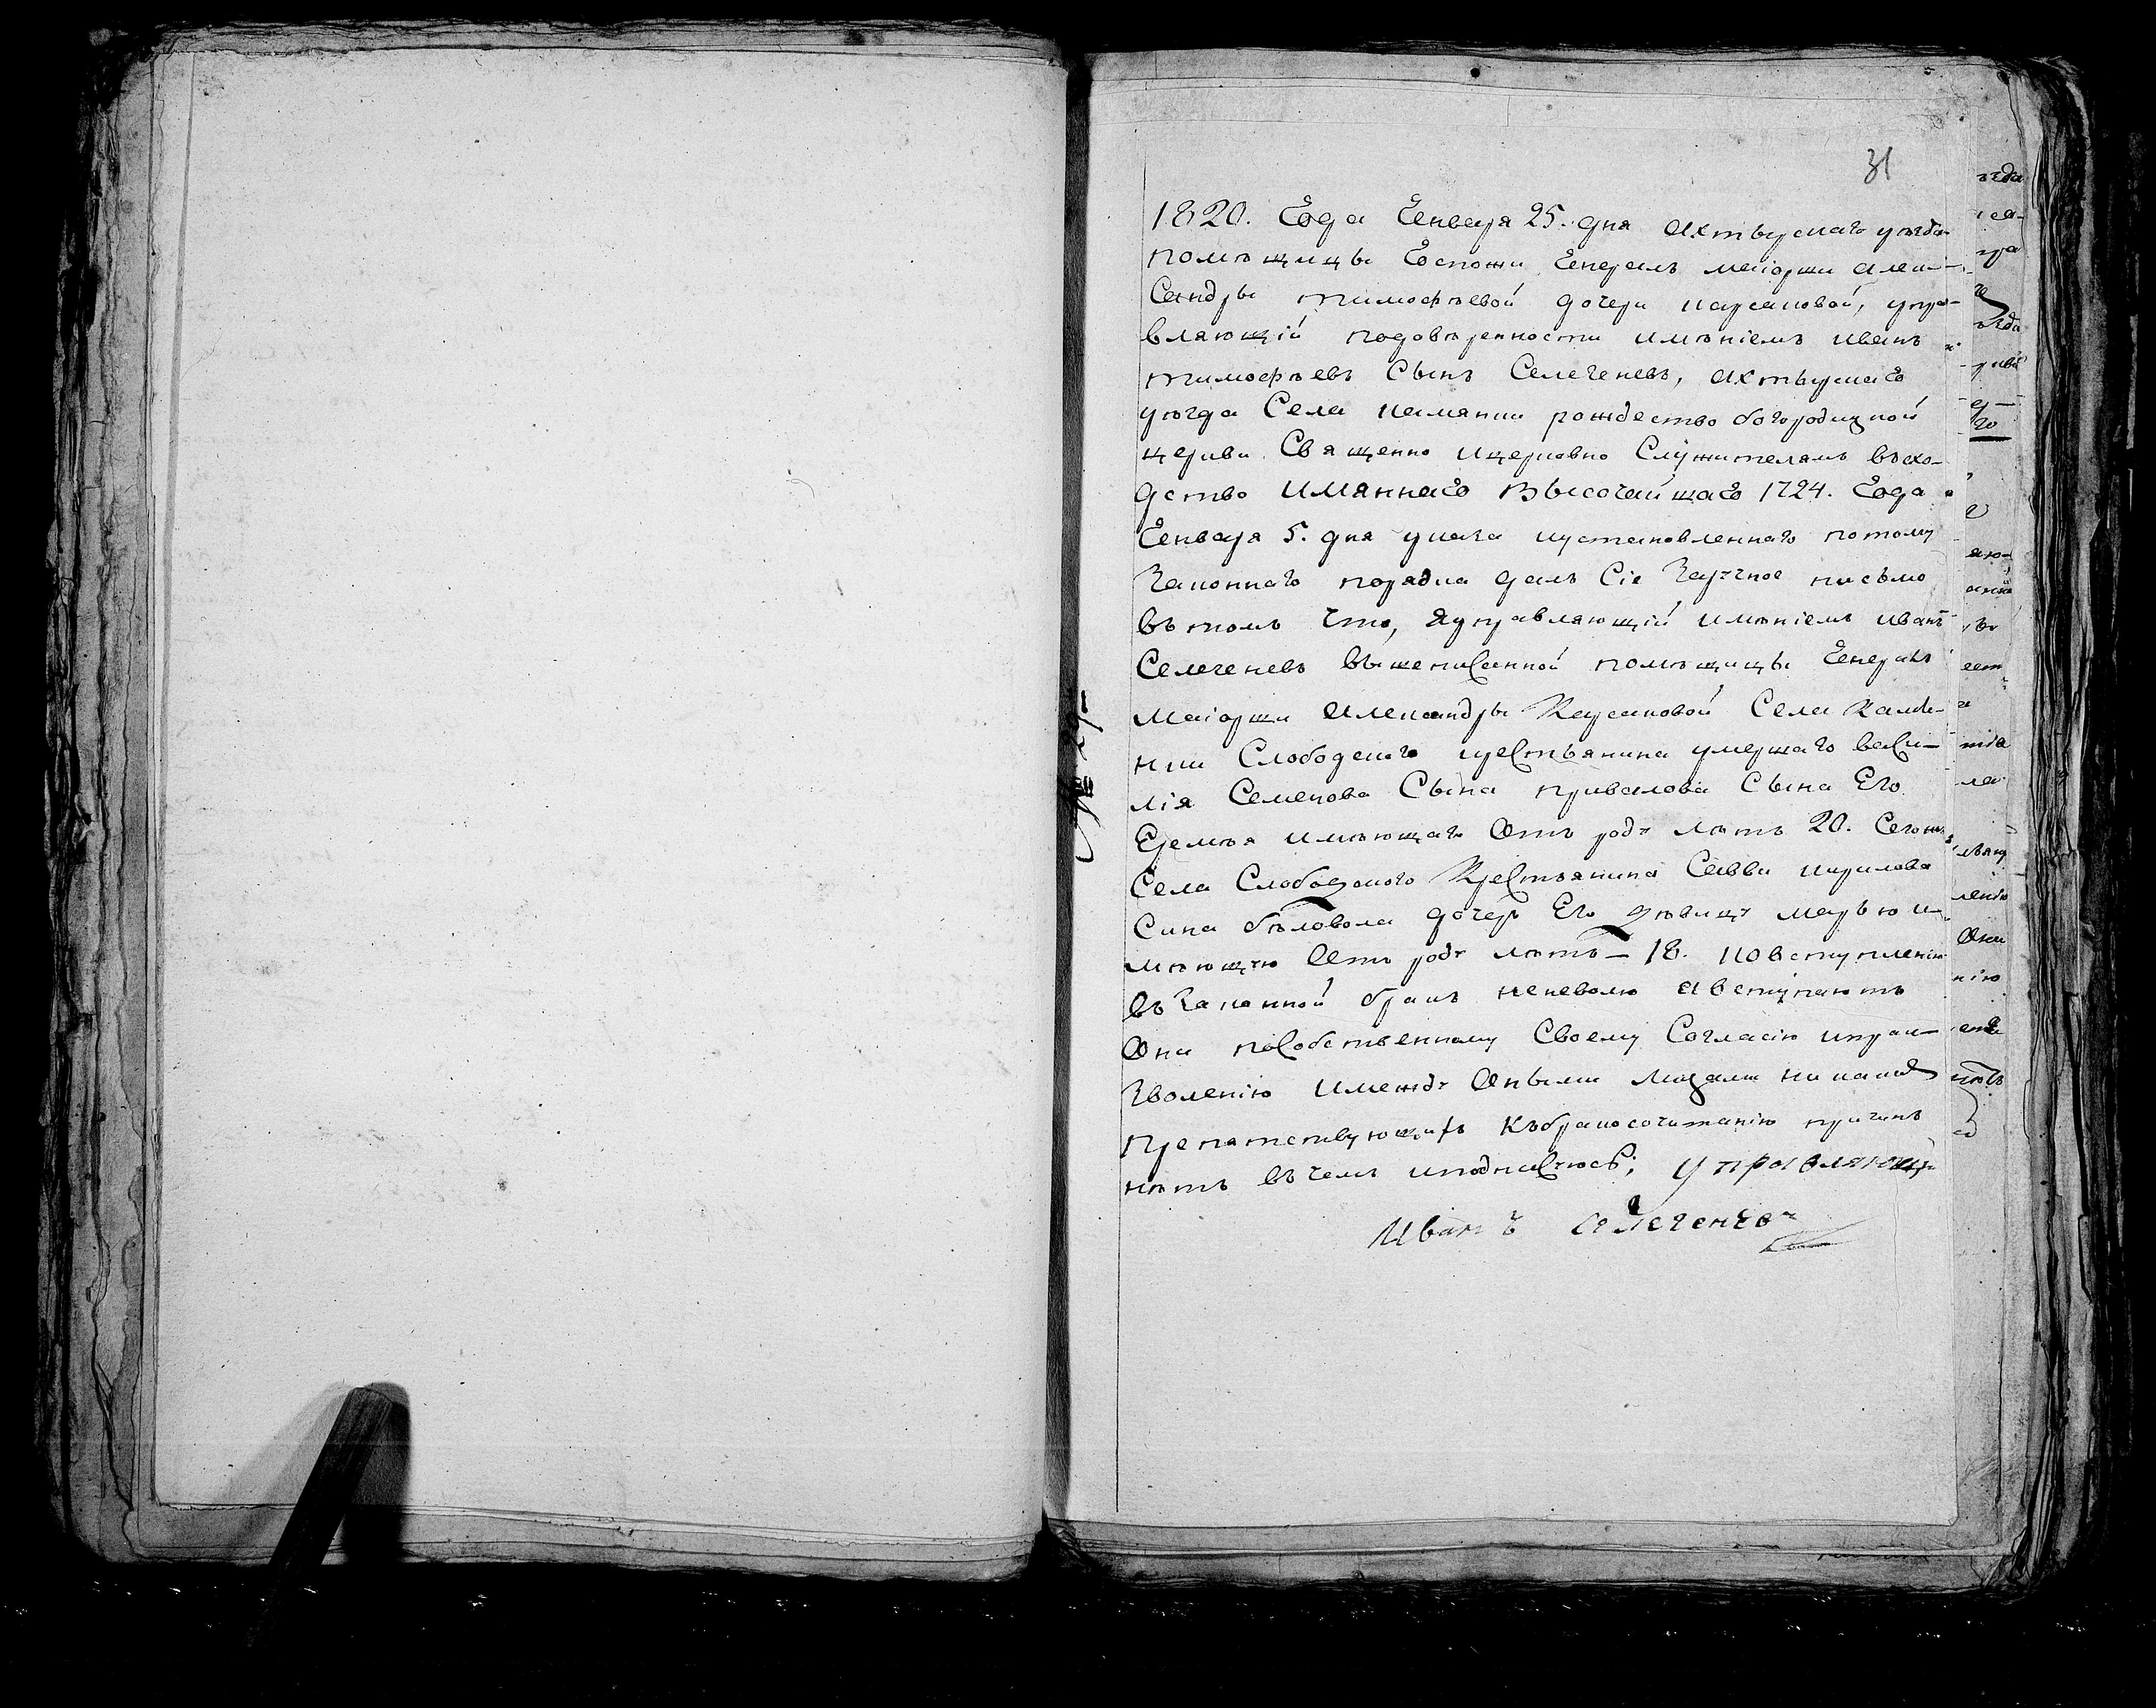 31
1820. Года Генваря 25. дня Ахтырскаго уезда
помѣщицы Госпожи Генералъ маіорши Алек-
Сандры тимофѣевой дочери карсаковой, упра-
вляющій подовѣренности имѣніемъ иванъ
тимофѣевъ Сынъ Селегеневъ, Ахтырскаго
уезда Села камянки рождество богородицкой
церкви Священно ицерковно Служителямъ въсхо-
дство имяннаго Высочайшаго 1724. Года
Генваря 5. дня указа иустановленнаго потому
Законнаго порядка далъ Сіе Заручное письмо
въ томъ Что, Яуправляющій имѣніемъ иванъ
Селегеневъ вышеписанной помѣщицы Генералъ
маіорши Александры Карсаковой Села Камя-
нки Слободского крестьянина умершаго васи-
лія Семенова Сына привалова Сына Его
Еремѣя имѣющаго Отъ роду лѣтъ 20. Сегожъ
Села Слободского Крестьянина Саввы кирилова
Сина бѣловола дочерь Его дѣвицу марью и-
мѣющую Отъ роду лѣтъ — 18. ковступленію
въ Законной бракъ неневолю Авступаютъ
Они пособственному Своему Согласію ипрои-
Зволенію имежду Оными лицами никакихъ
препятствующихъ Къбракосочитанію причинъ
нѣтъ въ чемъ иподписуюсь; управляющій
Иванъ Селегенев
№ 29-